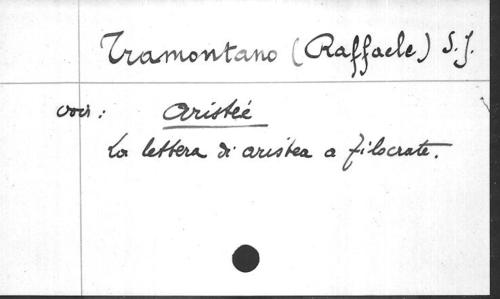 Tramontano (Raffaele) S.J.
voir : Aristée
La lettera di aristea a Filocrate.